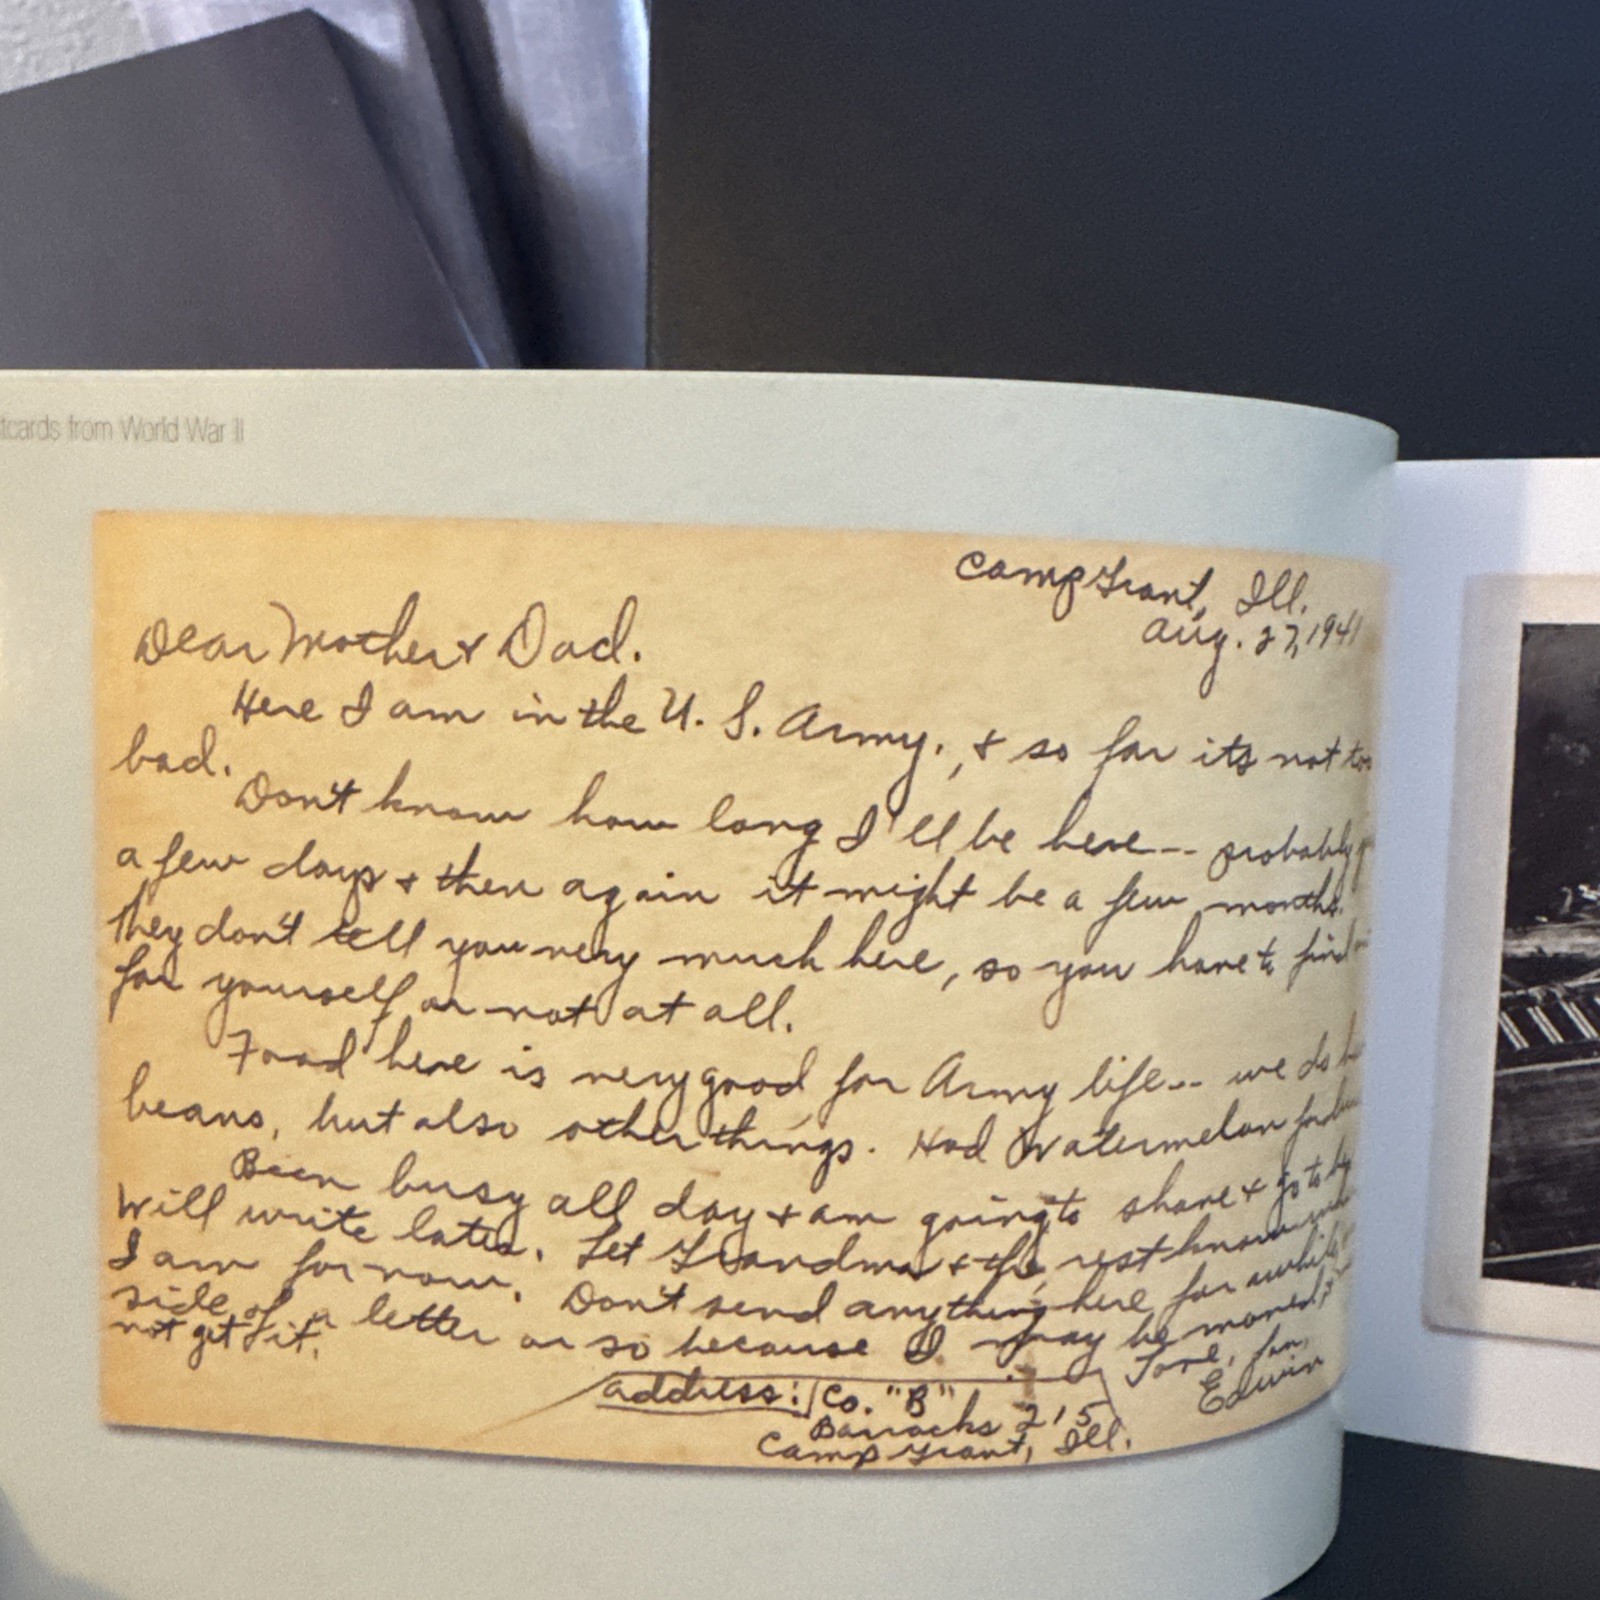 tcards from World War II
Camp Grant, Ill.
Aug. 27, 1941
Dear Mother & Dad.
Here I am in the U. S. Army., & so far its not too
bad.
Don't know how long I'll be here -- probably
a few days & then again it might be a few months.
They don't tell you very much here, so you have to find
for yourself or not at all.
Food here is very good for Army life -- we do
beans, but also other things. Had Watermelon for
Been busy all day & am going to shave & go to
Will write later. Let Grandma & the rest know
I am for now. Don't send anything here for awhile
side of a letter or so because I may be moved,
not get it.
Love,
Edwin
address: Co. "B"
Barracks 215
Camp Grant, Ill.